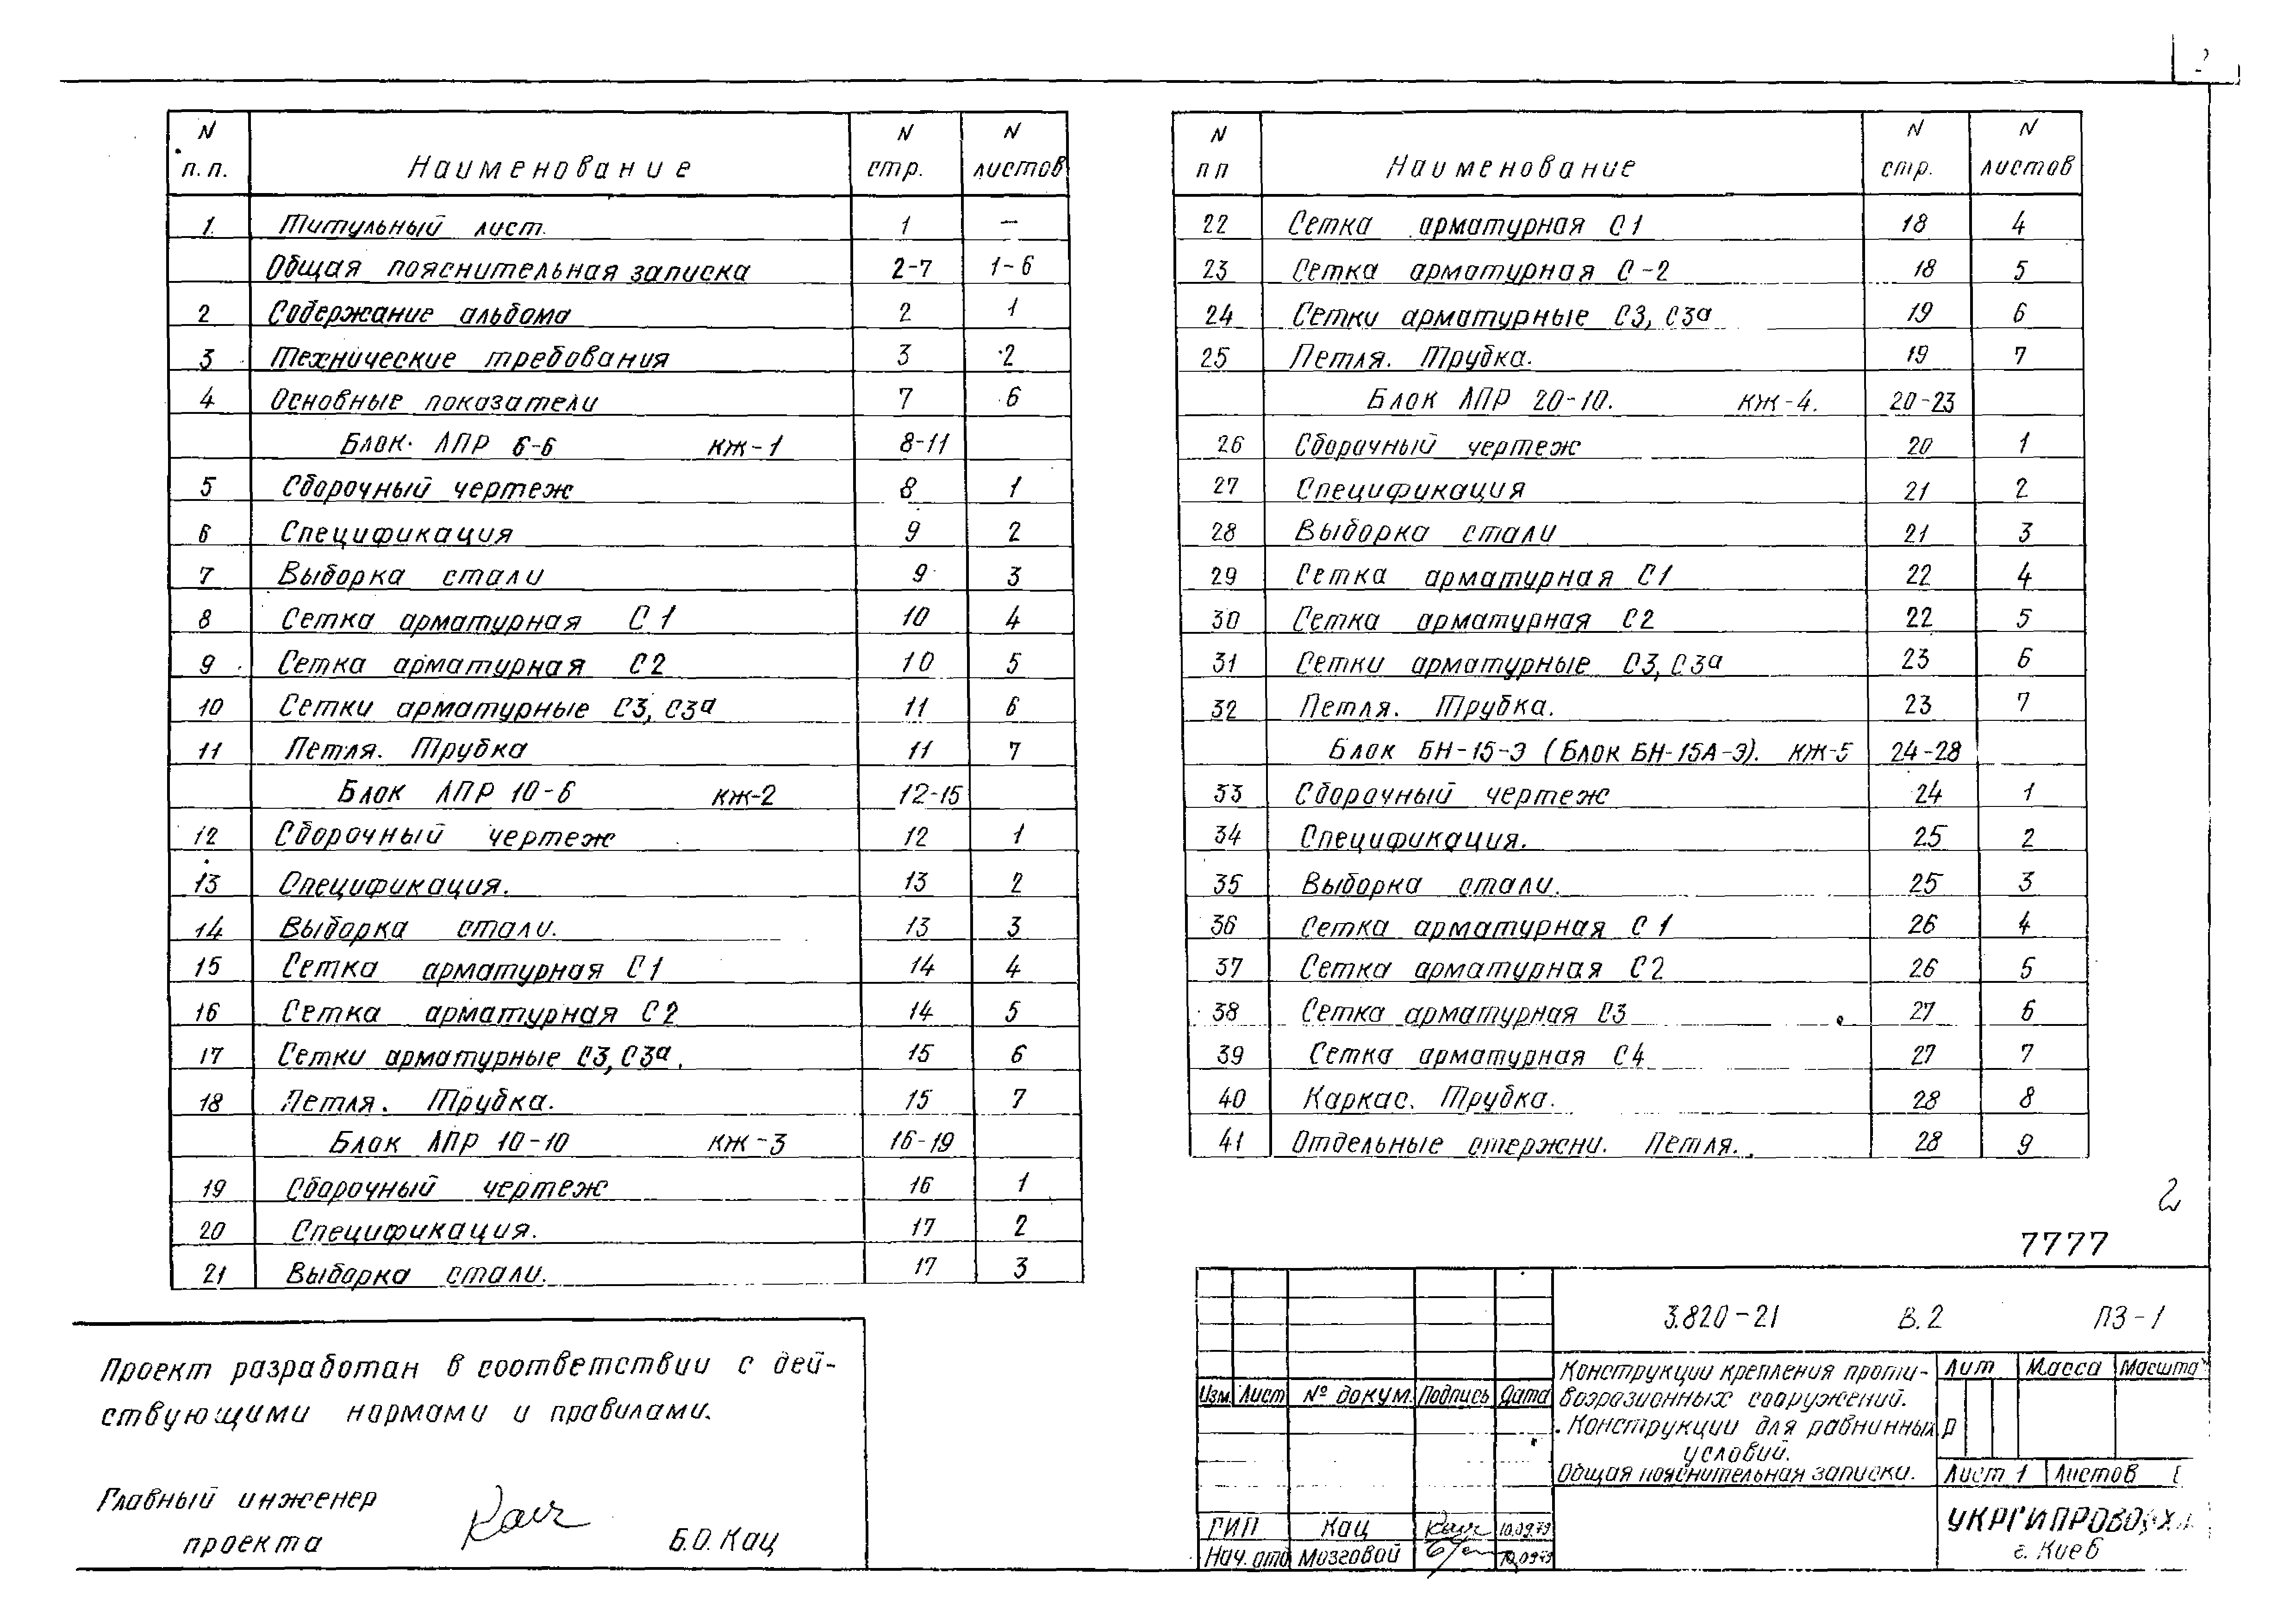 N п.п. Наименование N стр. N листов
1 Титульный лист. 1 —
Общая пояснительная записка 2-7 1-6
2 Содержание альбома 2 1
3 Технические требования 3 2
4 Основные показатели 7 6
Блок АПР 6-6 КЖ-1 8-11
5 Сборочный чертеж 8 1
6 Спецификация 9 2
7 Выборка стали 9 3
8 Сетка арматурная С1 10 4
9 Сетка арматурная С2 10 5
10 Сетки арматурные С3, С3а 11 6
11 Петля. Трубка 11 7
Блок АПР 10-6 КЖ-2 12-15
12 Сборочный чертеж 12 1
13 Спецификация. 13 2
14 Выборка стали. 13 3
15 Сетка арматурная С1 14 4
16 Сетка арматурная С2 14 5
17 Сетки арматурные С3, С3а. 15 6
18 Петля. Трубка. 15 7
Блок АПР 10-10 КЖ-3 16-19
19 Сборочный чертеж 16 1
20 Спецификация. 17 2
21 Выборка стали. 17 3
N пп Наименование N стр. N листов
22 Сетка арматурная С1 18 4
23 Сетка арматурная С-2 18 5
24 Сетки арматурные С3, С3а 19 6
25 Петля. Трубка. 19 7
Блок АПР 20-10. КЖ-4. 20-23
26 Сборочный чертеж 20 1
27 Спецификация 21 2
28 Выборка стали 21 3
29 Сетка арматурная С1 22 4
30 Сетка арматурная С2 22 5
31 Сетки арматурные С3, С3а 23 6
32 Петля. Трубка. 23 7
Блок БН-15-Э (Блок БН-15А-Э). КЖ-5 24-28
33 Сборочный чертеж 24 1
34 Спецификация. 25 2
35 Выборка стали. 25 3
36 Сетка арматурная С1 26 4
37 Сетка арматурная С2 26 5
38 Сетка арматурная С3 27 6
39 Сетка арматурная С4 27 7
40 Каркас. Трубка. 28 8
41 Отдельные стержни. Петля. 28 9
2
7777
Проект разработан в соответствии с дей-
ствующими нормами и правилами.
Главный инженер
проекта Б.О. Кац
3.820-21 В.2 ПЗ-1
Конструкции крепления проти-
воэрозионных сооружений.
Конструкции для равнинных
условий.
Общая пояснительная записки.
Лит Масса
Р
Лист 1 Листов
Изм. Лист № докум. Подпись Дата
ГИП Кац 10.09.79
Нач. отд Мозговой 10.09.79
г. Киев